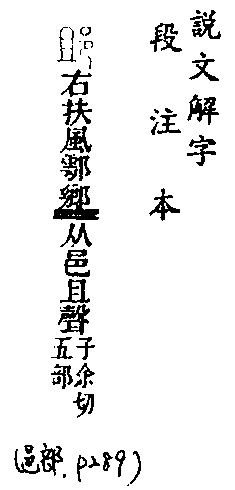 説文解字
段注本
右扶風鄠鄉从邑且聲
子余切
五部
(邑部.p289)